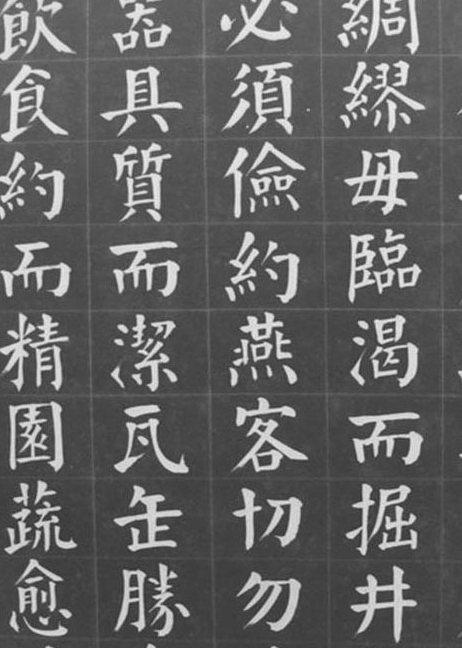 綢繆毋臨渴而掘井
必須儉約燕客切勿
器具質而潔瓦缶勝
飲食約而精園蔬愈